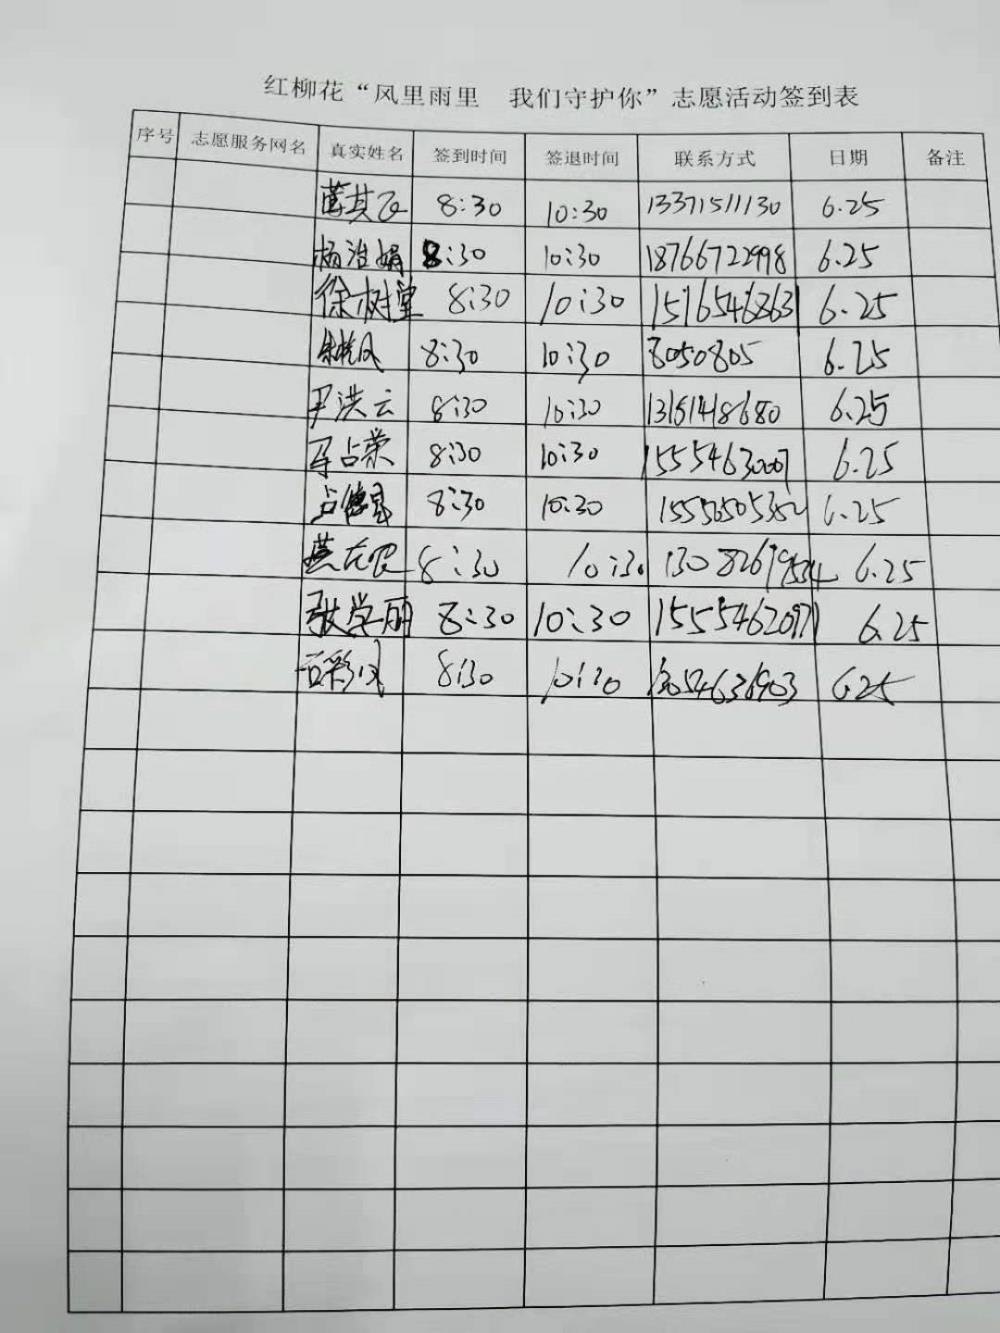 红柳花“风里雨里 我们守护你”志愿活动签到表
序号 志愿服务网名 真实姓名 签到时间 签退时间 联系方式 日期 备注
8:30 10:30 13371511130 6.25
8:30 10:30 18766722998 6.25
徐树堂 8:30 10:30 15165468631 6.25
8:30 10:30 8050805 6.25
尹洪云 8:30 10:30 13161418680 6.25
马占荣 8:30 10:30 15554630007 6.25
8:30 10:30 15550505352 6.25
8:30 10:30 6.25
张学丽 8:30 10:30 15554620971 6.25
石彩凤 8:30 10:30 13054636903 6.25